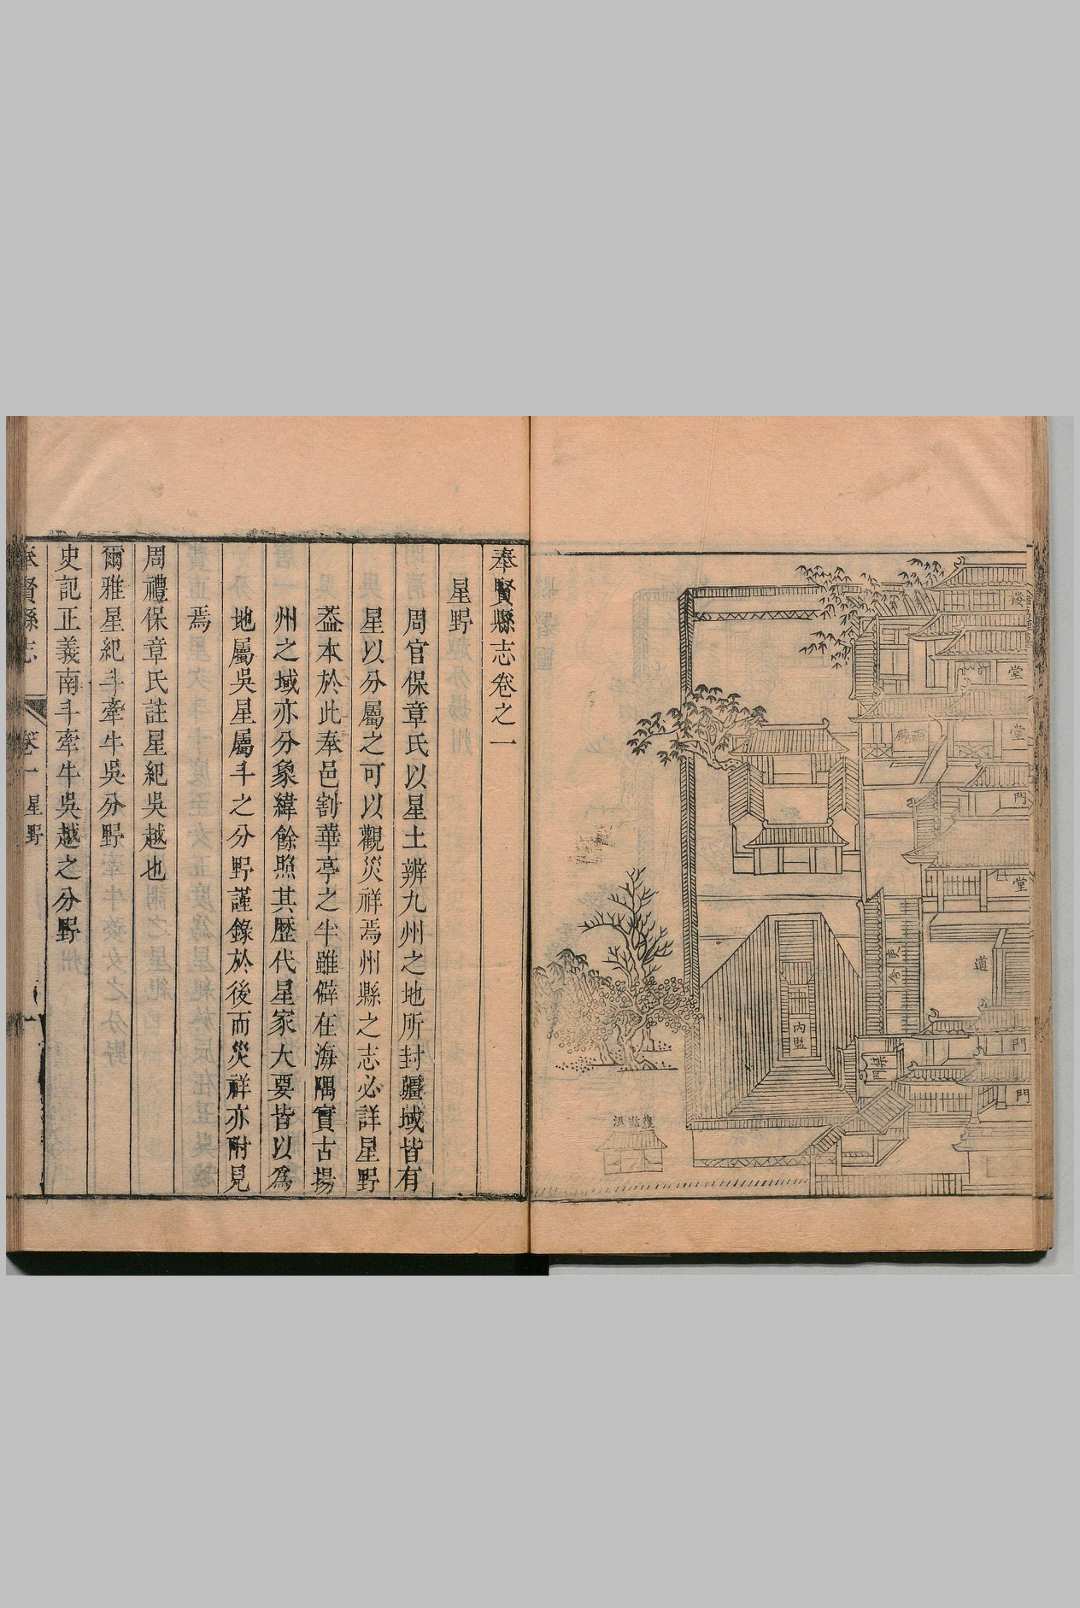 樓
堂
堂
門
堂
道
門
門
吏舍
內監
奉賢縣志卷之一
星野
周官保章氏以星土辨九州之地所封疆域皆有
星以分屬之可以觀災祥焉州縣之志必詳星野
葢本於此奉邑割華亭之半雖僻在海隅實古揚
州之域亦分象緯餘照其歷代星家大要皆以爲
地屬吳星屬斗之分野謹錄於後而災祥亦附見
焉
周禮保章氏註星紀吳越也
爾雅星紀斗牽牛吳分野
史記正義南斗牽牛吳越之分野
奉賢縣志
卷一 星野
一